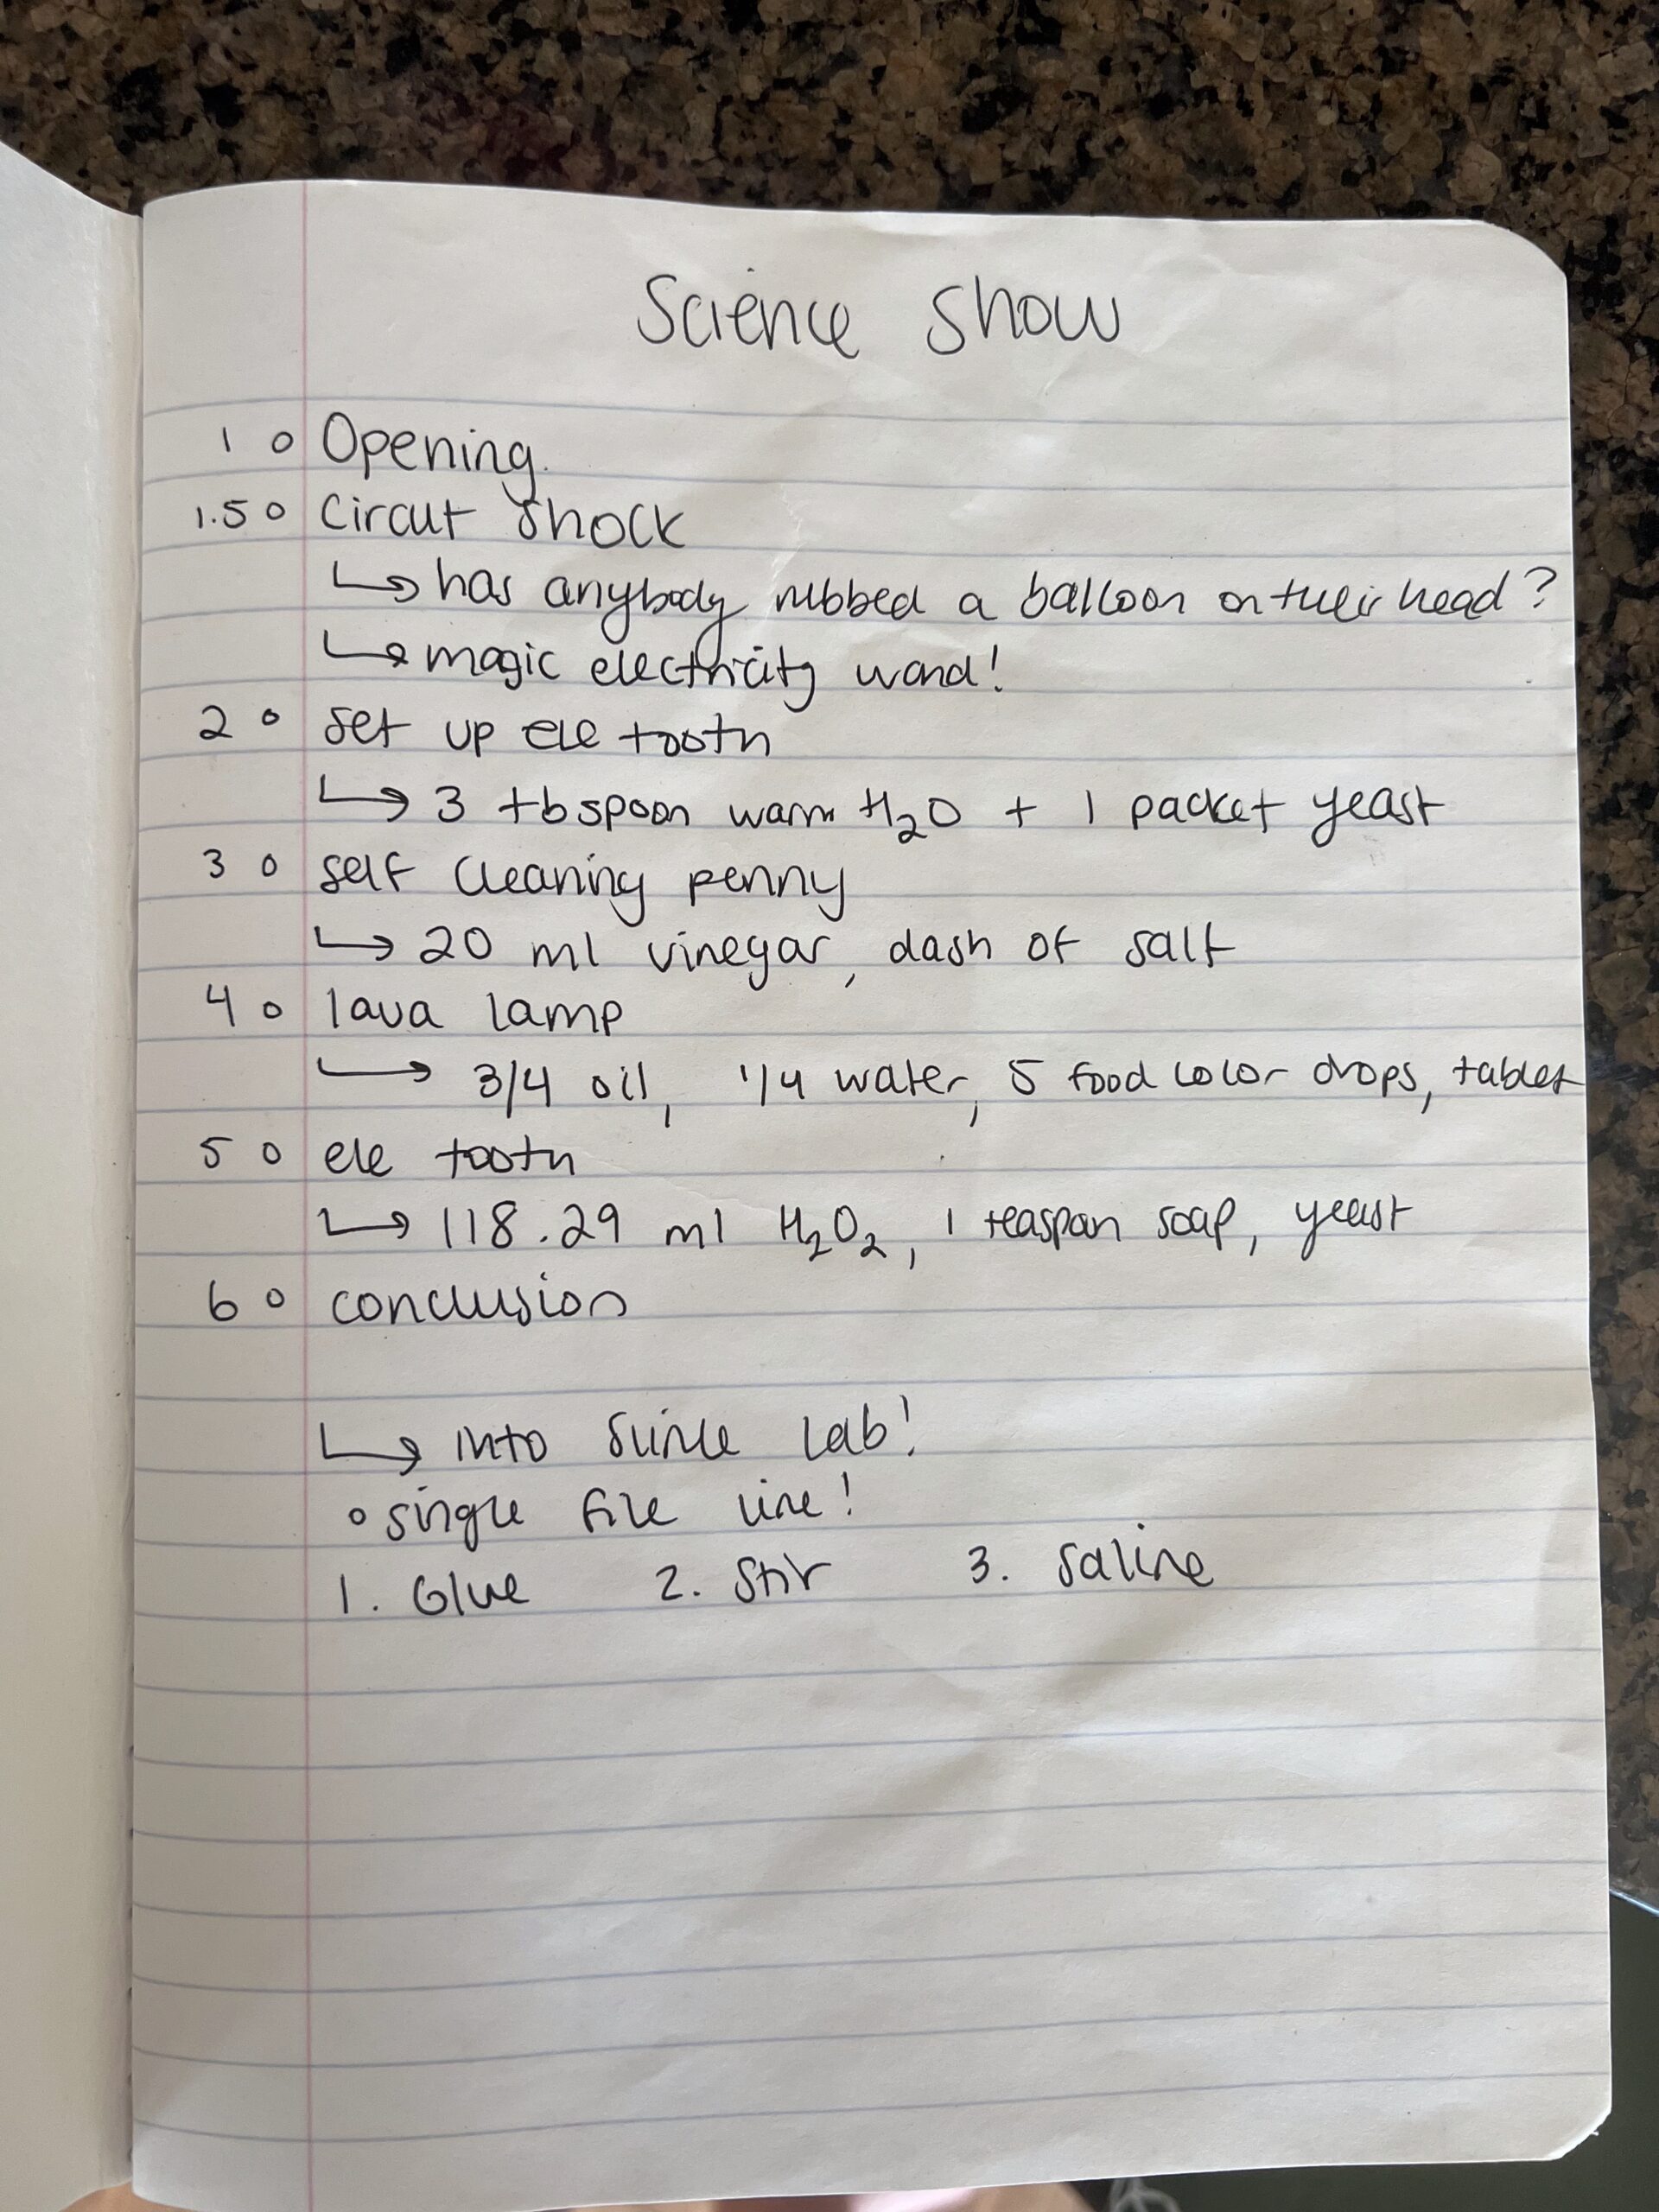 Science Show
1 o Opening.
1.5 o Circut Shock
↳ has anybody rubbed a balloon on their head?
↳ magic electricity wand!
2 o set up ele tooth
↳ 3 tbspoon warm H₂O + 1 packet yeast
3 o self cleaning penny
↳ 20 ml vinegar, dash of salt
4 o lava lamp
↳ 3/4 oil, 1/4 water, 5 food color drops, tablet
5 o ele tooth
↳ 118.29 ml H₂O₂, 1 teaspoon soap, yeast
6 o conclusion
↳ into lab!
o single file line!
1. Glue 2. Stir 3. Saline